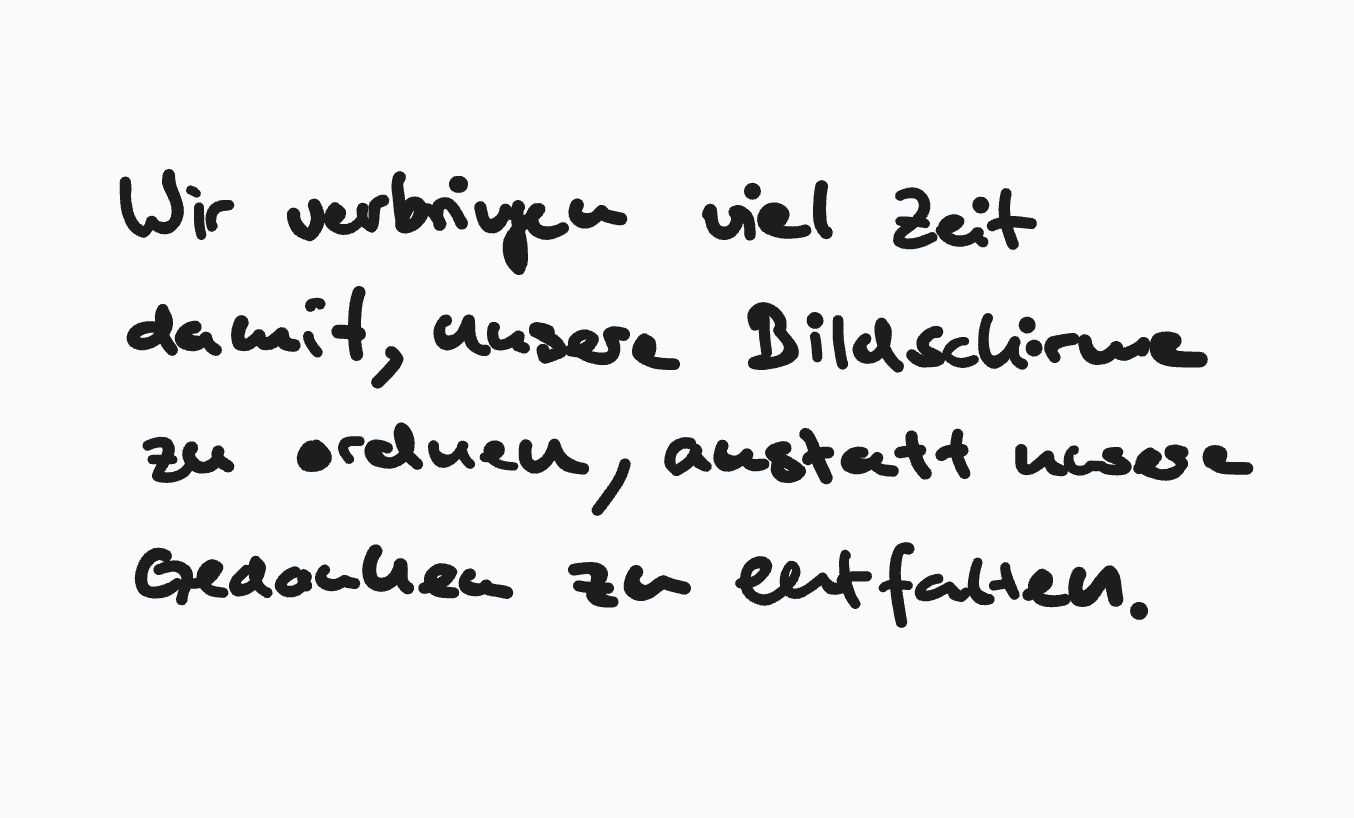 Wir verbringen viel Zeit
damit, unsere Bildschirme
zu ordnen, anstatt unsere
Gedanken zu entfalten.